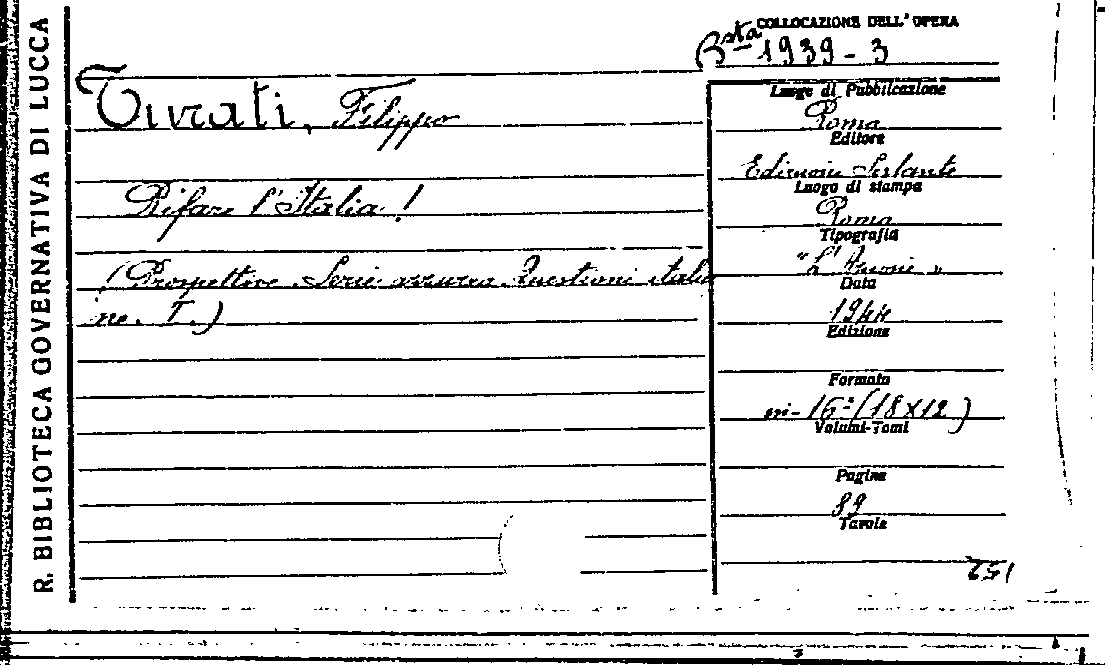 R. BIBLIOTECA GOVERNATIVA DI LUCCA
COLLOCAZIONE DELL'OPERA
Bsta 1939-3
Turati, Filippo
Rifare l'Italia!
(Prospettive. Serie azzurra. Questioni italia
ne. I.)
Luogo di Pubblicazione
Roma
Editore
Edizioni Sestante
Luogo di stampa
Roma
Tipografia
"L'Airone"
Data
1944
Edizione
Formato
in-16° (18x12)
Volumi-Tomi
Pagine
89
Tavole
152